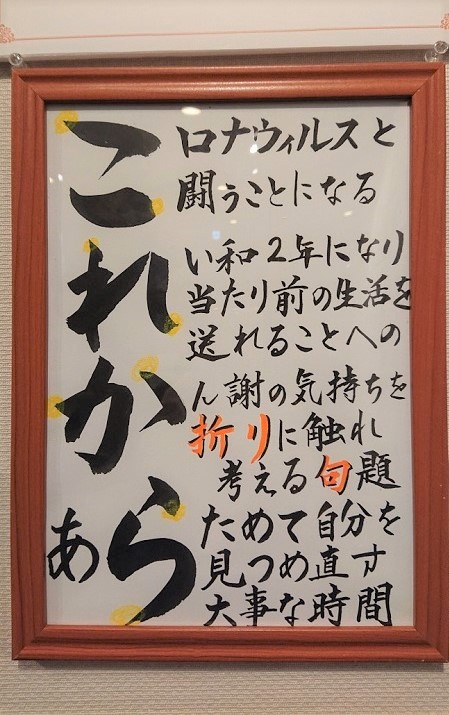 これから
ロナウィルスと
闘うことになる
い和2年になり
当たり前の生活を
送れることへの
ん謝の気持ちを
折りに触れ
考える句題
あ
ためて自分を
見つめ直す
大事な時間